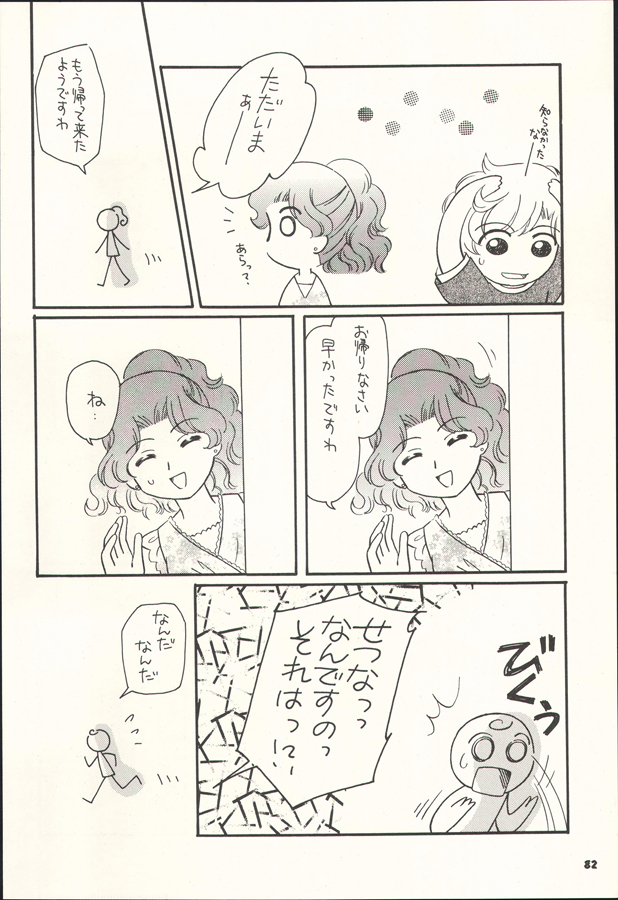 知らなかった
な…
ただいま
あ
あらっ?
もう帰って来た
ようですわ
お帰りなさい
早かったですわ
ね…
びくぅ
せつなっっ
なんですのっ
それはっ!?
なんだ
なんだ
82